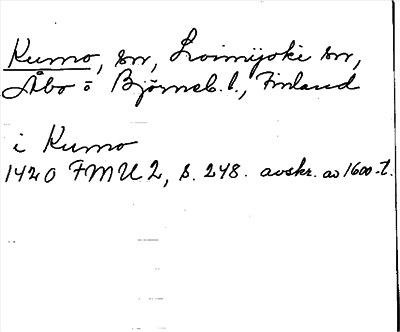 Kumo, sn, Loimijoki sn,
Åbo o Björneb. l., Finland
i Kumo
1420 FMU 2, s. 248. avskr. av 1600-t.